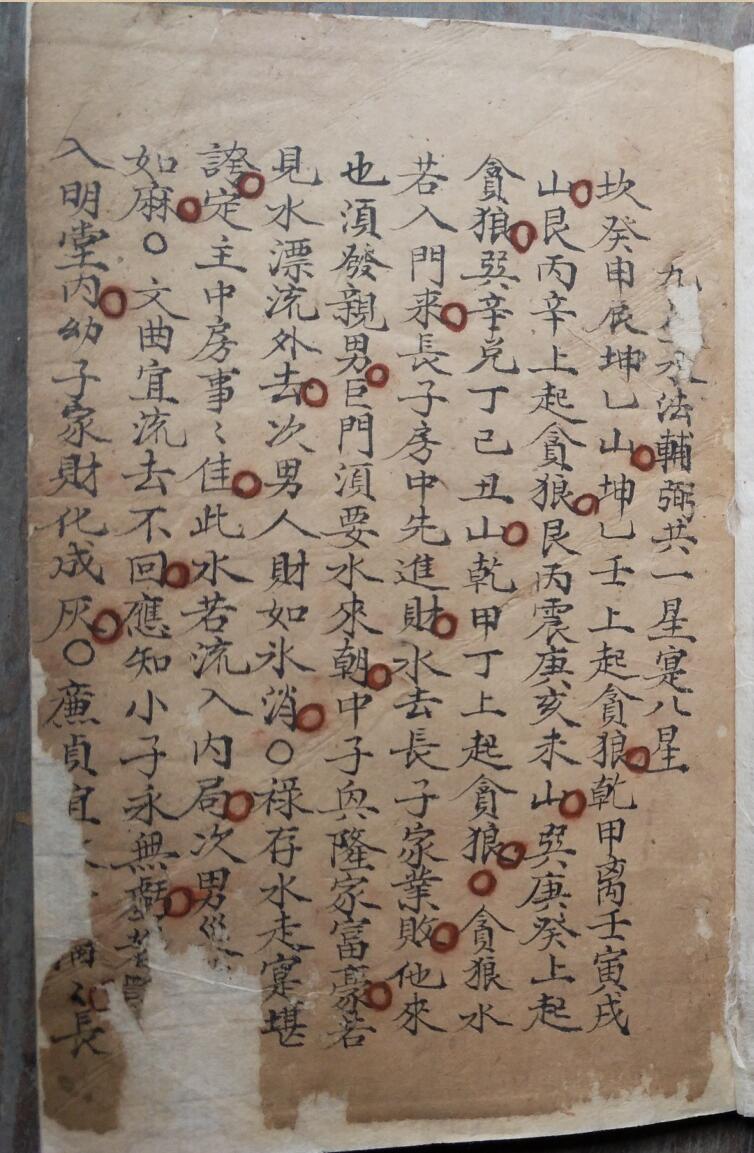 九水法輔弼共一星寔八星
坎癸申辰坤乚山坤乚壬上起貪狼乾甲离壬寅戌
山艮丙辛上起貪狼艮丙震庚亥未山巽庚癸上起
貪狼巽辛兌丁已丑山乾甲丁上起貪狼〇貪狼水
若入門来長子房中先進財水去長子家業敗他來
也須發親男巨門須要水來朝中子興隆家富豪若
見水漂流外去次男人財如氷消〇祿存水走寔堪
誇定主中房事〻佳此水若流入内局次男
如麻〇文曲宜流去不回應知小子永無
入明堂内幼子家財化成灰〇廉貞宜〻長